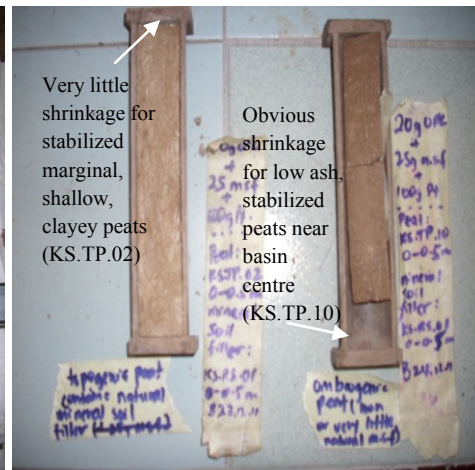 Very little
shrinkage for
stabilized
marginal,
shallow,
clayey peats
(KS.TP.02)
Obvious
shrinkage
for low ash,
stabilized
peats near
basin
centre
(KS.TP.10)
+
25 msf
+
Peat:
KS.TP.02
0-0.5m
mineral
soil
filler:
KS.RS.01
0-0.5m
20g OPC
+
25g m.s.f
+
100g Pt
Peat:
KS.TP.10
0-0.5m
mineral
soil
filler:
KS.RS.01
0-0.5m
topogenic peat
(contains natural
mineral soil
filler
ombrogenic
peat (non
or very little
natural m.s.f)